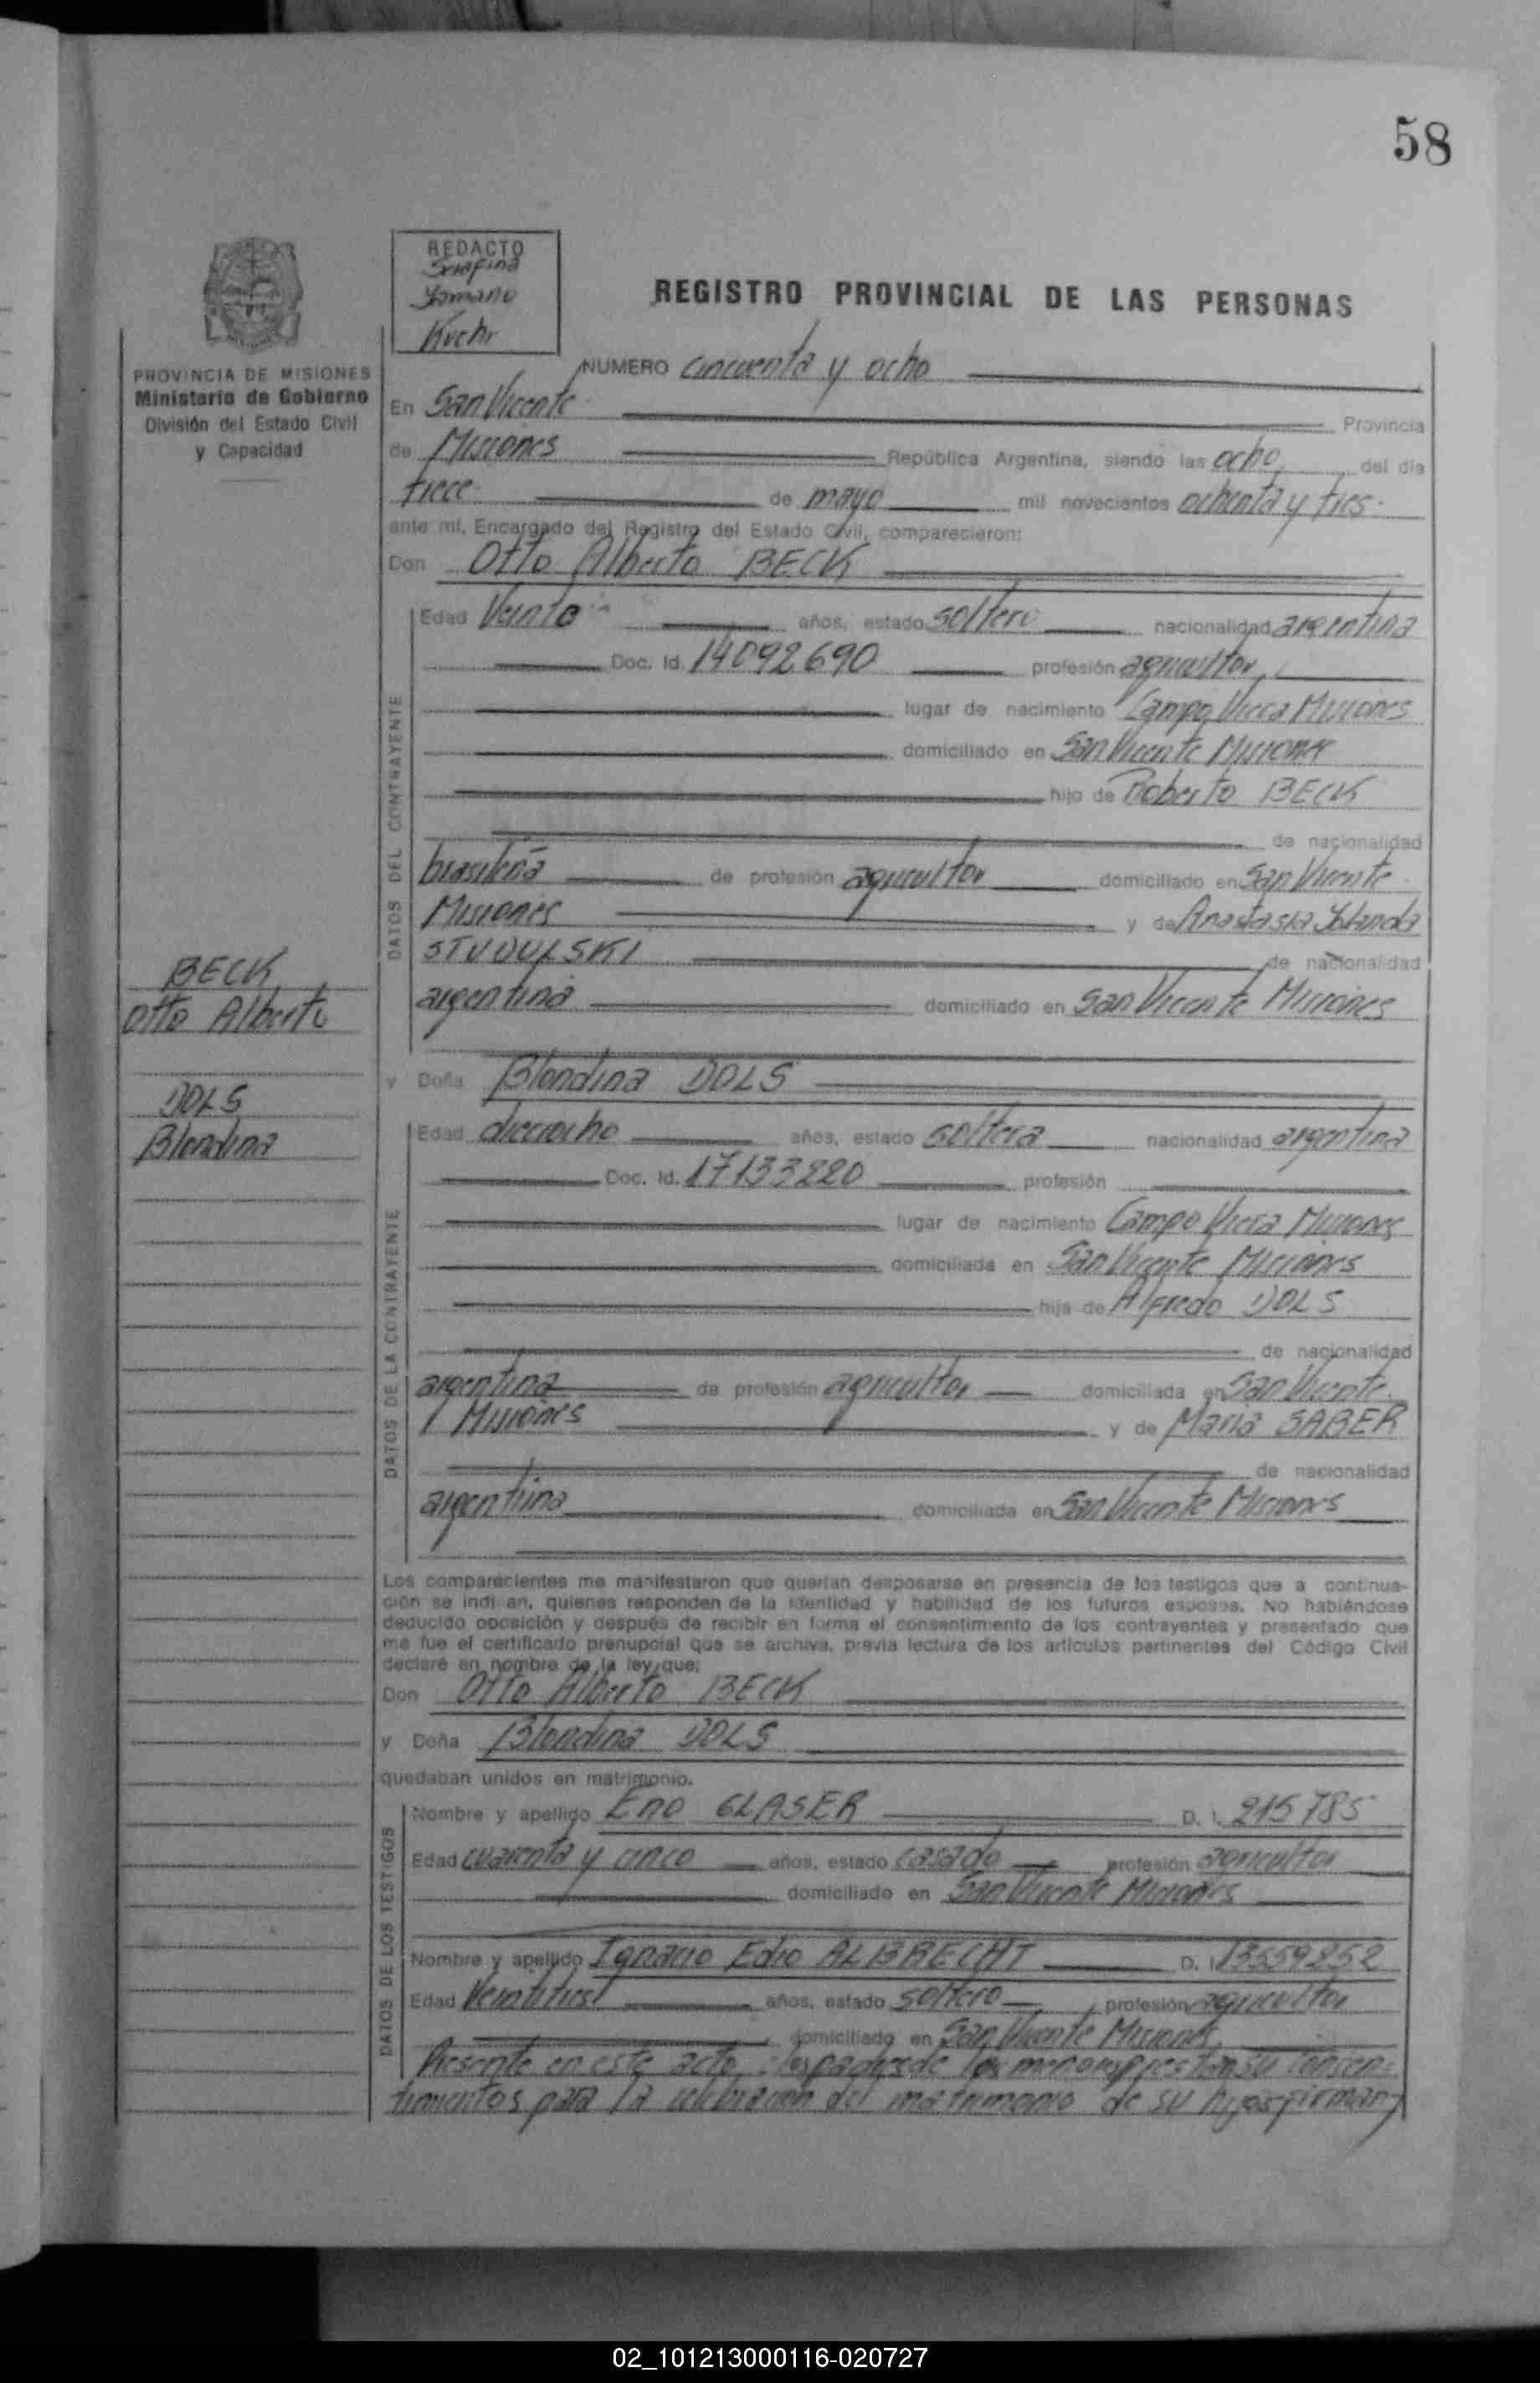 58
REDACTO
Serafina
Kuchr
REGISTRO PROVINCIAL DE LAS PERSONAS
PROVINCIA DE MISIONES
Ministerio de Gobierno
División del Estado Civil
y Capacidad
NUMERO cincuenta y ocho
En San Vicente Provincia
de Misiones República Argentina, siendo las ocho del día
trece de mayo mil novecientos ochenta y tres
ante mí, Encargado del Registro del Estado Civil, comparecieron:
Don Otto Alberto BECK
DATOS DEL CONTRAYENTE
Edad Veinte años, estado soltero nacionalidad argentina
Doc. Id. 14092690 profesión agricultor
lugar de nacimiento Campo Viera Misiones
domiciliado en San Vicente Misiones
hijo de Roberto BECK
de nacionalidad
brasileña de profesión agricultor domiciliado en San Vicente
Misiones y de Anastasia Yolanda
STUDULSKI de nacionalidad
argentina domiciliado en San Vicente Misiones
BECK
Otto Alberto
DOLS
Blondina
y Doña Blondina DOLS
DATOS DE LA CONTRAYENTE
Edad dieciocho años, estado soltera nacionalidad argentina
Doc. Id. 17133220 profesión
lugar de nacimiento Campo Viera Misiones
domiciliada en San Vicente Misiones
hija de Alfredo DOLS
de nacionalidad
argentina de profesión agricultor domiciliada en San Vicente
Misiones y de Maria SABER
de nacionalidad
argentina domiciliada en San Vicente Misiones
Los comparecientes me manifestaron que querían desposarse en presencia de los testigos que a continua-
ción se indi an, quienes responden de la identidad y habilidad de los futuros esposos. No habiéndose
deducido oposición y después de recibir en forma el consentimiento de los contrayentes y presentado que
me fue el certificado prenupcial que se archiva, previa lectura de los artículos pertinentes del Código Civil
declaré en nombre de la ley que:
Don Otto Alberto BECK
y Doña Blondina DOLS
quedaban unidos en matrimonio.
DATOS DE LOS TESTIGOS
Nombre y apellido Eno GLASER D. I. 215785
Edad cuarenta y cinco años, estado casado profesión agricultor
domiciliado en San Vicente Misiones
Nombre y apellido Ignacio Edio ALBRECHT D. I. 13559252
Edad Veintitres años, estado soltero profesión agricultor
domiciliado en San Vicente Misiones
Presente en este acto: los padres de los menores prestan su consen=
timientos para la celebracion del matrimonio de su hijos firman
02_101213000116-020727